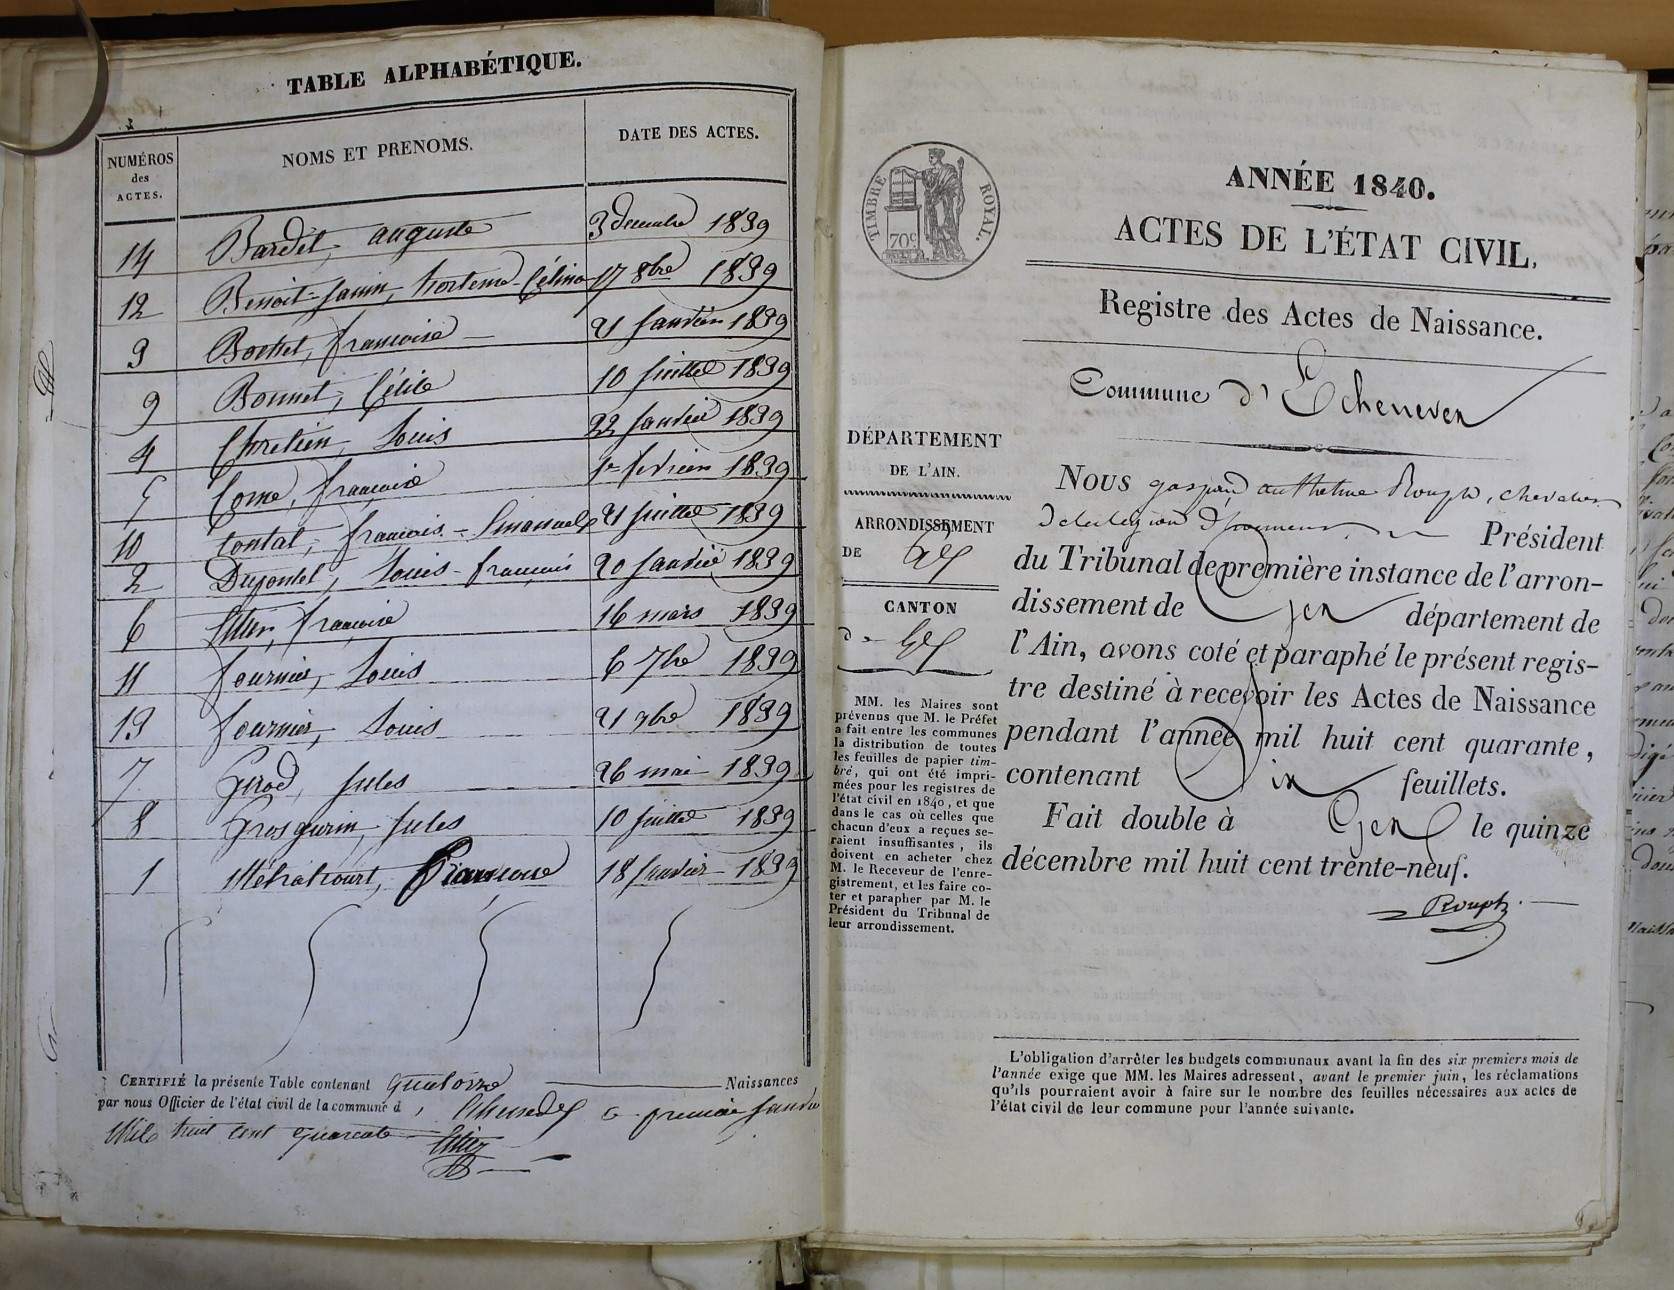 TABLE ALPHABÉTIQUE.
NUMÉROS des ACTES. NOMS ET PRENOMS. DATE DES ACTES.
14 Bardet, auguste 3 decembre 1839
12 Benoit-Janin, hortense-Célina 17 8bre 1839
3 Bochet, françoise 21 Janvier 1839
9 Bonnet, Célile 10 Juillet 1839
4 Chretien, Louis 22 Janvier 1839
5 Corne, françoise 1er fevrier 1839
10 Contat, françois-Emanuel 21 Juillet 1839
2 Dupontet, Louis-françois 20 Janvier 1839
6 françoise 16 mars 1839
11 fournier, Louis 6 7bre 1839
13 fournier, Louis 21 9bre 1839
7 Girod, Jules 26 mai 1839
8 Grosgurin, Jules 10 Juillet 1839
1 Métralcourt, Françoise 18 Janvier 1839
CERTIFIÉ la présente Table contenant quatorze Naissances
par nous Officier de l'état civil de la commune d' Echenevex le premier Janvier
Mil huit cent quarante
TIMBRE ROYAL.
70c
ANNÉE 1840.
ACTES DE L'ÉTAT CIVIL,
Registre des Actes de Naissance.
Commune d'Echenevex
DÉPARTEMENT
DE L'AIN.
ARRONDISSEMENT
DE Gex
CANTON
de Gex
MM. les Maires sont
prévenus que M. le Préfet
a fait entre les communes
la distribution de toutes
les feuilles de papier tim-
bré, qui ont été impri-
mées pour les registres de
l'état civil en 1840, et que
dans le cas où celles que
chacun d'eux a reçues se-
raient insuffisantes, ils
doivent en acheter chez
M. le Receveur de l'enre-
gistrement, et les faire co-
ter et parapher par M. le
Président du Tribunal de
leur arrondissement.
Nous gaspard anthelme Rouph, chevalier
de la légion d'honneur Président
du Tribunal de première instance de l'arron-
dissement de Gex département de
l'Ain, avons coté et paraphé le présent regis-
tre destiné à recevoir les Actes de Naissance
pendant l'année mil huit cent quarante,
contenant Dix feuillets.
Fait double à Gex le quinze
décembre mil huit cent trente-neuf.
Rouph
L'obligation d'arrêter les budgets communaux avant la fin des six premiers mois de
l'année exige que MM. les Maires adressent, avant le premier juin, les réclamations
qu'ils pourraient avoir à faire sur le nombre des feuilles nécessaires aux actes de
l'état civil de leur commune pour l'année suivante.